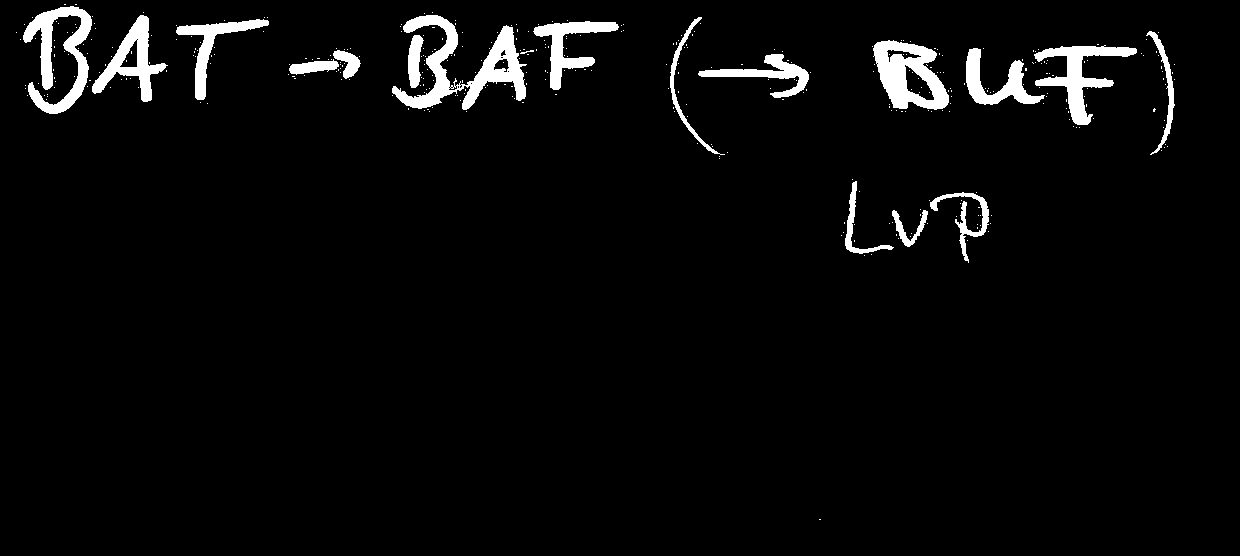 BAT → BAF (→ BUF)
LVP